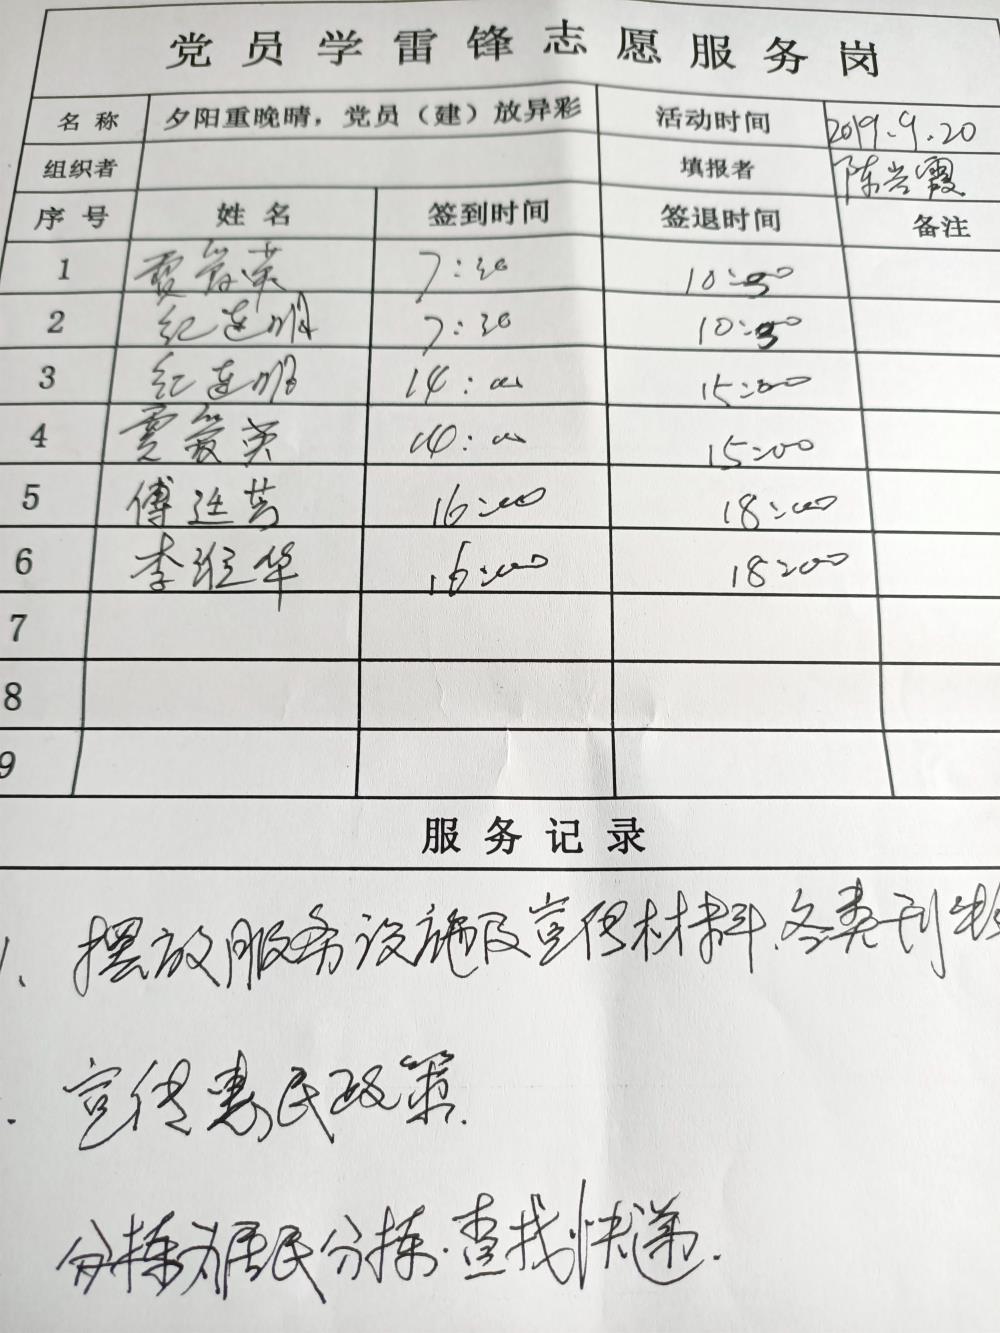 党员学雷锋志愿服务岗
名称 夕阳重晚晴，党员（建）放异彩 活动时间 2019.9.20
组织者 填报者 陈兴霞
序号 姓名 签到时间 签退时间 备注
1 贾爱英 7:30 10:30
2 纪连明 7:30 10:30
3 纪连明 14:00 15:00
4 贾爱英 14:00 15:00
5 傅廷芳 16:00 18:00
6 李维华 16:00 18:00
7
8
9
服务记录
1、摆放服务设施及宣传材料、各类刊物
宣传惠民政策.
分拣为居民分拣.查找快递.